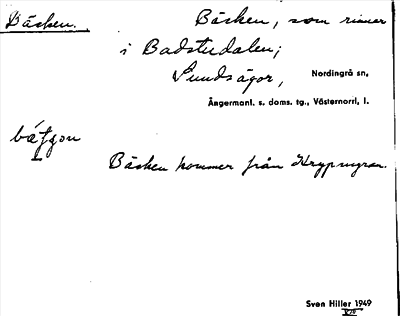 Bäcken. Bäcken, som rinner
i Badstudalen;
Sundsågor, Nordingrå sn,
Ångermanl. s. doms. tg., Västernorrl, l.
Bäcken kommer från Krypmyran.
Sven Hiller 1949